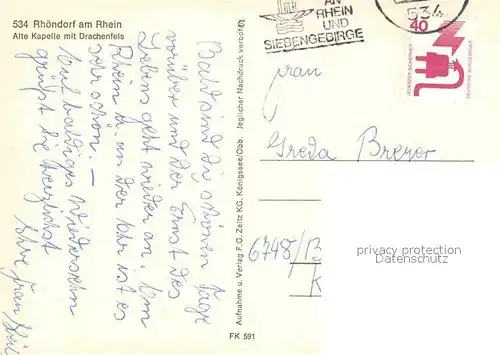 534 Rhöndorf am Rhein
Alte Kapelle mit Drachenfels
Bald sind die schönen Tage
vorüber und der Ernst des
Lebens geht wieder an. Am
Rhein u. an der Ahr ist es
sehr schön. —
Auf baldiges Wiedersehn
grüßt Sie herzlichst
Ihre Frau
Aufnahme u. Verlag F.G. Zeitz KG. Königssee/Obb. Jeglicher Nachdruck verboten
FK 591
AN
RHEIN
UND
SIEBENGEBIRGE
534
40
JEDERZEIT SICHERHEIT
DEUTSCHE BUNDESPOST
Frau
Greda Breyer
6748/B
K
privacy protection
DATENSCHUTZ